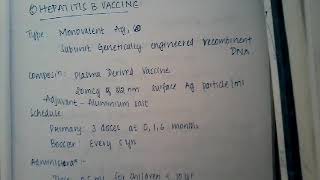 HEPATITIS B VACCINE
Type: Monovalent Ag,
Subunit Genetically engineered recombinant
DNA.
Plasma Derived Vaccine
20mcg of 22 nm surface Ag particle/ml
-Adjuvant - Aluminium salt
Schedule:
Primary: 3 doses at 0,1,6 months
Booster: Every 5 yrs
for children < 10 yr